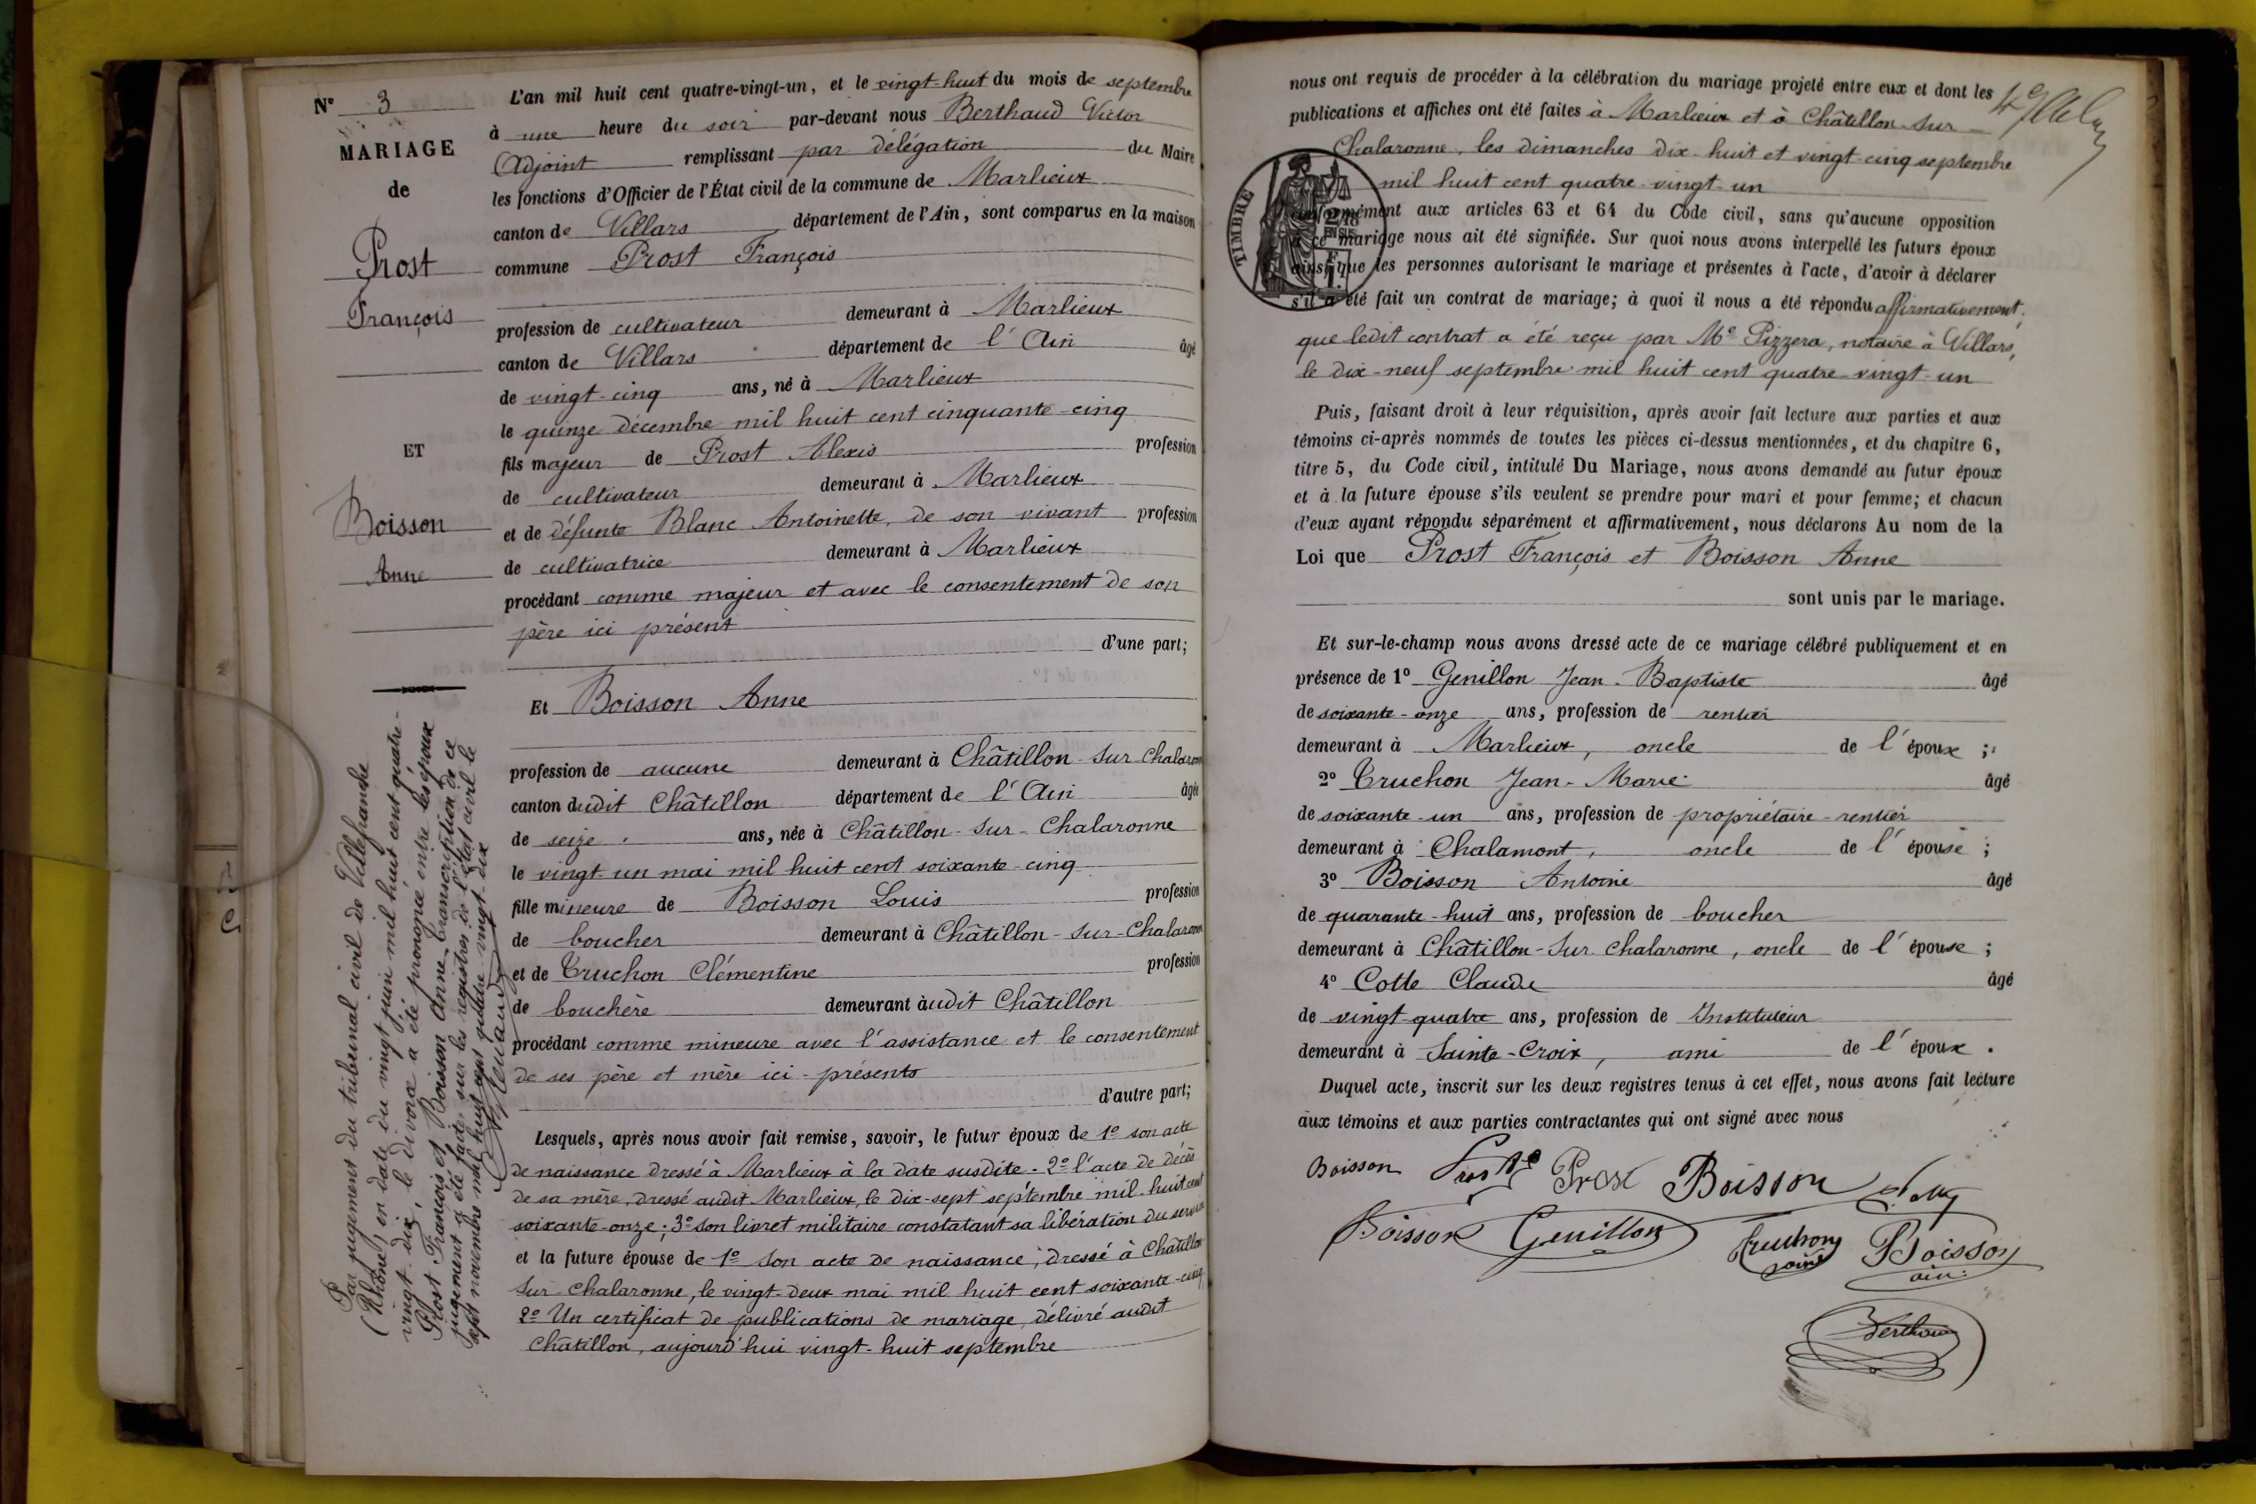 N° 3
MARIAGE
de
Prost
François
ET
Boisson
Anne
Par jugement du tribunal civil de Villefranche
(Rhône) en date du vingt juin mil huit cent quatre-
vingt-dix, le divorce a été prononcé entre les époux
Prost François et Boisson Anne. Transcription de ce
jugement a été faite sur les registres de l'état civil le
sept novembre mil huit cent quatre-vingt-dix
L'an mil huit cent quatre-vingt-un, et le vingt-huit du mois de septembre
à une heure du soir par-devant nous Berthaud Victor
Adjoint remplissant par délégation du Maire
les fonctions d'Officier de l'État civil de la commune de Marlieux
canton de Villars département de l'Ain, sont comparus en la maison
commune Prost François
profession de cultivateur demeurant à Marlieux
canton de Villars département de l'Ain âgé
de vingt-cinq ans, né à Marlieux
le quinze décembre mil huit cent cinquante-cinq
fils majeur de Prost Alexis profession
de cultivateur demeurant à Marlieux
et de défunte Blanc Antoinette, de son vivant profession
de cultivatrice demeurant à Marlieux
procédant comme majeur et avec le consentement de son
père ici présent
d'une part;
Et Boisson Anne
profession de aucune demeurant à Châtillon-sur-Chalaronne
canton dudit Châtillon département de l'Ain âgée
de seize ans, née à Châtillon-sur-Chalaronne
le vingt un mai mil huit cent soixante-cinq
fille mineure de Boisson Louis profession
de boucher demeurant à Châtillon-sur-Chalaronne
et de Truchon Clémentine profession
de bouchère demeurant audit Châtillon
procédant comme mineure avec l'assistance et le consentement
de ses père et mère ici présents
d'autre part;
Lesquels, après nous avoir fait remise, savoir, le futur époux de 1° son acte
de naissance dressé à Marlieux à la date susdite. 2° l'acte de décès
de sa mère, dressé audit Marlieux, le dix-sept septembre mil-huit cent
soixante-onze; 3° son livret militaire constatant sa libération du service
et la future épouse de 1° son acte de naissance, dressé à Châtillon
sur Chalaronne, le vingt-deux mai mil huit cent soixante-cinq
2° Un certificat de publications de mariage, délivré audit
Châtillon, aujourd'hui vingt-huit septembre
nous ont requis de procéder à la célébration du mariage projeté entre eux et dont les
publications et affiches ont été faites à Marlieux et à Châtillon-sur-
Chalaronne, les dimanches dix-huit et vingt-cinq septembre
mil huit cent quatre-vingt-un
TIMBRE
conformément aux articles 63 et 64 du Code civil, sans qu'aucune opposition
à ce mariage nous ait été signifiée. Sur quoi nous avons interpellé les futurs époux
ainsi que les personnes autorisant le mariage et présentes à l'acte, d'avoir à déclarer
s'il a été fait un contrat de mariage; à quoi il nous a été répondu affirmativement.
que ledit contrat a été reçu par Me Pizzera, notaire à Villars,
le dix-neuf septembre mil huit cent quatre-vingt-un
Puis, faisant droit à leur réquisition, après avoir fait lecture aux parties et aux
témoins ci-après nommés de toutes les pièces ci-dessus mentionnées, et du chapitre 6,
titre 5, du Code civil, intitulé Du Mariage, nous avons demandé au futur époux
et à la future épouse s'ils veulent se prendre pour mari et pour femme; et chacun
d'eux ayant répondu séparément et affirmativement, nous déclarons Au nom de la
Loi que Prost François et Boisson Anne
sont unis par le mariage.
Et sur-le-champ nous avons dressé acte de ce mariage célébré publiquement et en
présence de 1° Genillon Jean-Baptiste âgé
de soixante-onze ans, profession de rentier
demeurant à Marlieux, oncle de l'époux ;
2° Truchon Jean-Marie âgé
de soixante-un ans, profession de propriétaire-rentier
demeurant à Chalamont, oncle de l'épouse ;
3° Boisson Antoine âgé
de quarante-huit ans, profession de boucher
demeurant à Châtillon-sur Chalaronne, oncle de l'épouse ;
4° Cotte Claude âgé
de vingt-quatre ans, profession de Instituteur
demeurant à Sainte-Croix, ami de l'époux .
Duquel acte, inscrit sur les deux registres tenus à cet effet, nous avons fait lecture
aux témoins et aux parties contractantes qui ont signé avec nous
Boisson Prost Boisson
Boisson Genillon Truchon Boisson